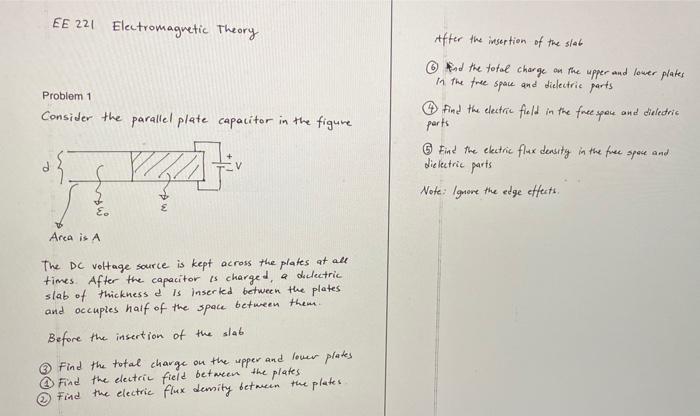 EE 221 Electromagnetic Theory
Problem 1
Consider the parallel plate capacitor in the figure
d
+
- V
ε₀
ε
Area is A
The DC voltage source is kept across the plates at all
times. After the capacitor is charged, a dielectric
slab of thickness d is inserted between the plates
and occupies half of the space between them.
Before the insertion of the slab
③ Find the total charge on the upper and lower plates
① Find the electric field between the plates
② Find the electric flux density between the plates.
After the insertion of the slab
⑥ Find the total charge on the upper and lower plates
in the free space and dielectric parts
④ Find the electric field in the free space and dielectric
parts
⑤ Find the electric flux density in the free space and
dielectric parts
Note: Ignore the edge effects.